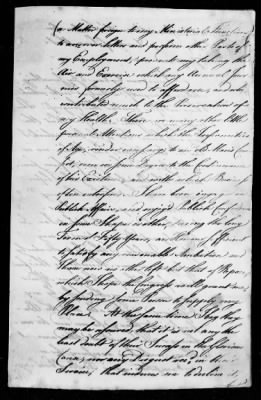 (a Matter foreign to my Ministerial Functions)
to answer Letters and perform other Parts of
my Employment; prevents my taking the
Air and Exercise which my Annual Jour-
nies formerly used to afford me, and which
contributed much to the Preservation of
my Health. There are many other little
personal Attentions which the Infirmities
of Age render necessary to an old Man's Com-
fort, even in some Degree to the Continuance
of his Existence, and with which Business
often interferes. I have been engag'd in
Publick Affairs, and enjoyed Publick Confidence
in some Shape or other, during the long
Term of Fifty Years, an Honour sufficient
to satisfy any reasonable Ambition, and
I have now no other left but that of Repose,
which I hope the Congress will grant me,
by sending some Person to supply my
Place. At the same time I beg they
may be assured, that it is not any the
least doubt of their Success in the Glorious
Cause, nor any Disgust received in their
Service, that induces me to decline it,